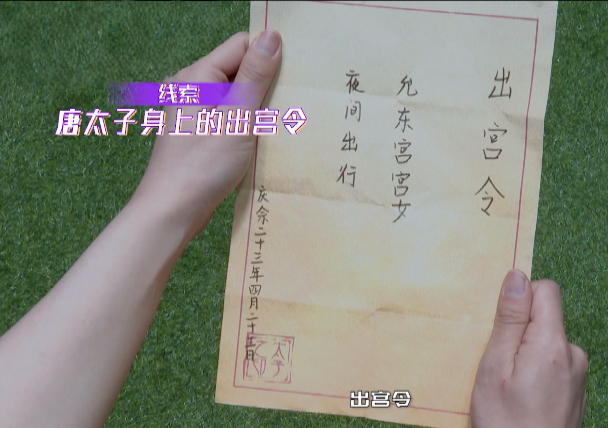 线索
唐太子身上的出宫令
出宫令
允东宫宫女
夜间出行
庆余二十三年四月二十五日
太子之印
出宫令